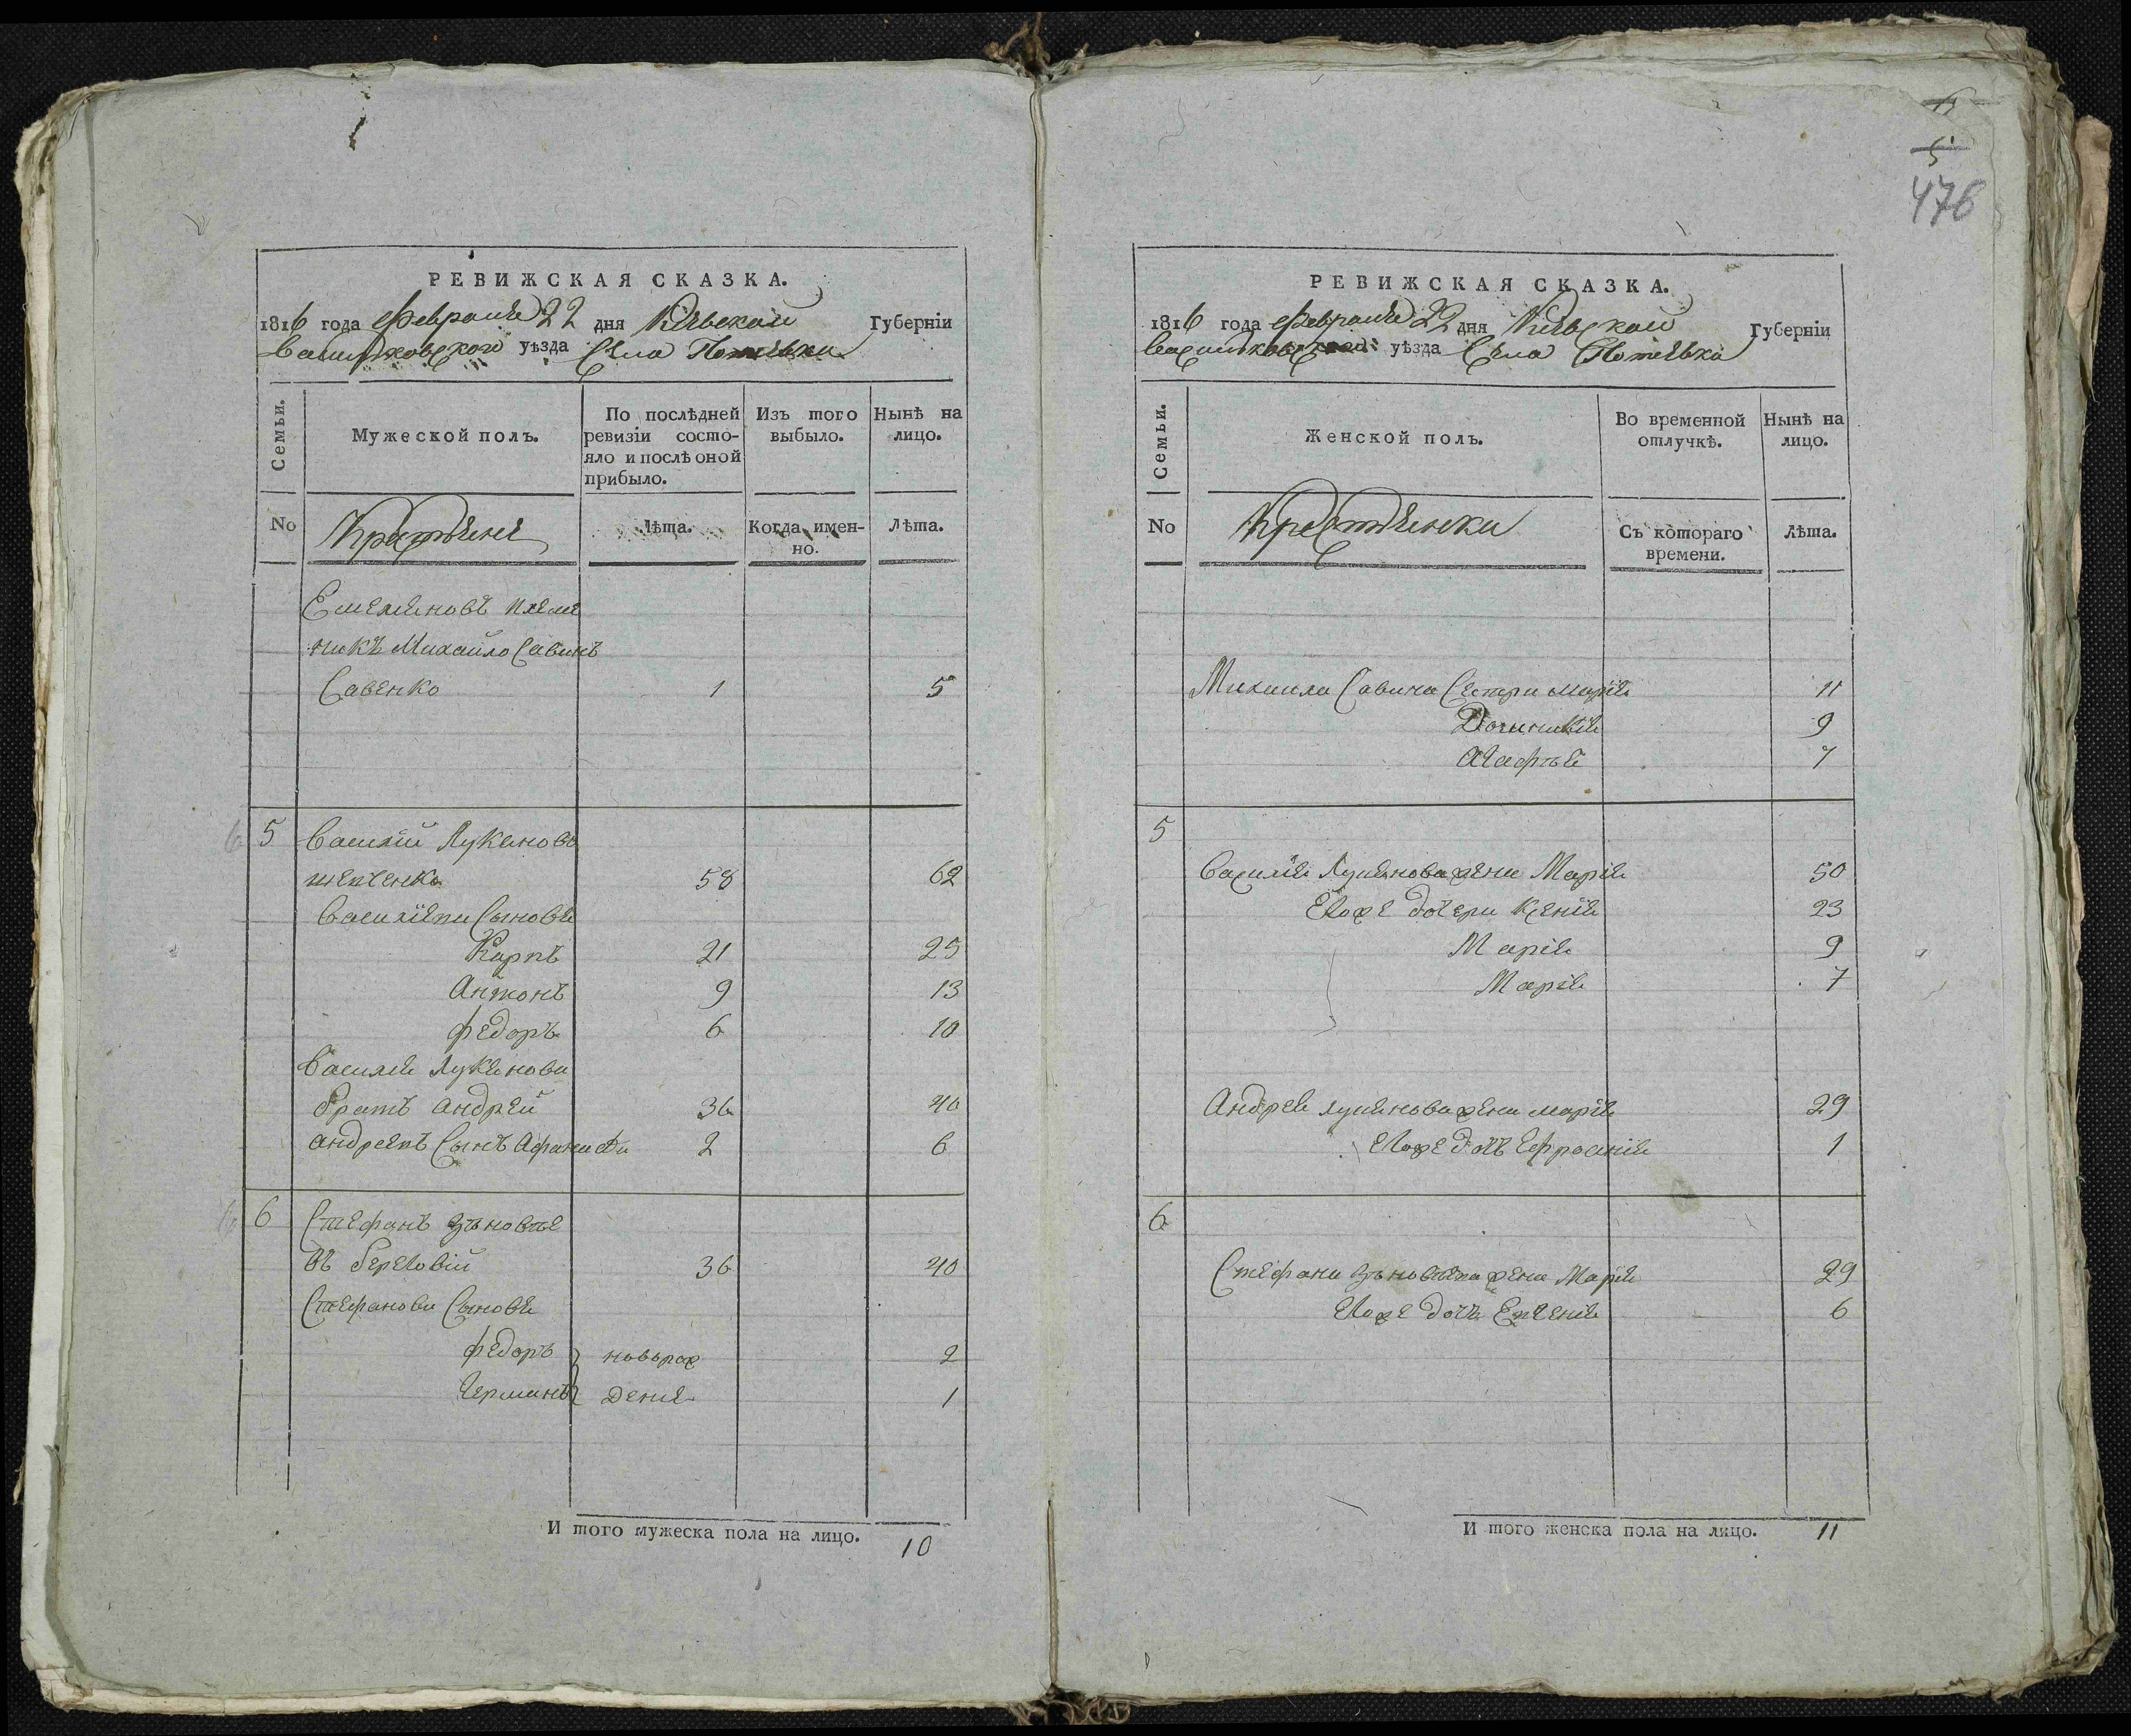 РЕВИЖСКАЯ СКАЗКА.
1816 года Февраля 22 дня Кіевской Губерніи
Васильковского уѣзда Села Потіевки
Семьи.
Мужеской полъ.
По послѣдней ревизіи состо-
яло и послѣ оной
прибыло.
Изъ того
выбыло.
Нынѣ на
лицо.
No
Крестяне
Лѣта.
Когда имен-
но.
Лѣта.
Емеляновъ племя
никъ Михайло Савинъ
Савенко 1 5
5 Василій Лукяновъ
58 62
Василіеви Сыновя
Карпъ 21 25
Антонъ 9 13
Федоръ 6 10
Василія Лукянова
братъ Андрей 36 40
Андреевъ Сынъ Афанасій 2 6
6 Стефанъ
въ Береговій 36 40
Стефанови Сыновя
Федоръ новорож 2
Германъ дение 1
И того мужеска пола на лицо. 10
476
5
РЕВИЖСКАЯ СКАЗКА.
1816 года Февраля 22 дня Кіевской Губерніи
уѣзда Села Потіевки
Семьи.
Женской полъ.
Во временной
отлучкѣ.
Нынѣ на
лицо.
No
Крестянки
Съ котораго
времени.
Лѣта.
Михаила Савина Сестри Марія 11
Домникія 9
Агафія 7
5
Василія Лукянова жена Марія 50
Егоже дочери Ксенія 23
Марія 9
Марія 7
Андрея Лукянова жена Марія 29
Егоже дочь Ефросинія 1
6
Стефана жена Марія 29
Егоже дочь Евгенія 6
И того женска пола на лицо. 11